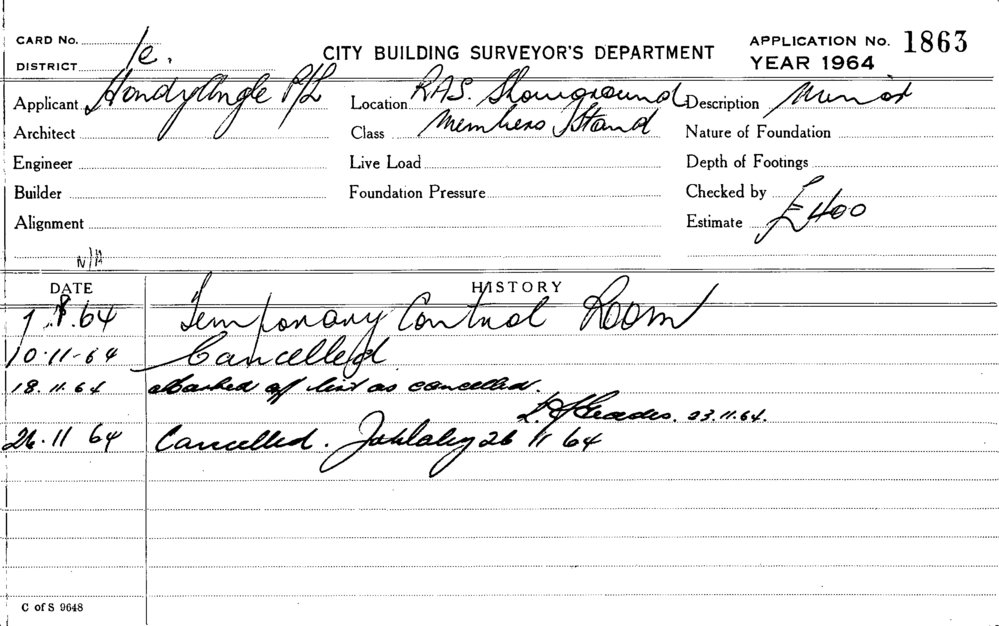 CARD No.
CITY BUILDING SURVEYOR'S DEPARTMENT
APPLICATION No. 1863
DISTRICT 1e.
YEAR 1964
Applicant HandyAngle P/L
Location RAS. Showground
Description Minor
Architect
Class Members Stand
Nature of Foundation
Engineer
Live Load
Depth of Footings
Builder
Foundation Pressure
Checked by
Alignment
Estimate £400
N/A
DATE
HISTORY
7.8.64 Temporary Control Room
10.11-64 Cancelled
18.11.64 Marked off list as cancelled.
23.11.64.
26.11 64 Cancelled. 26 11 64
C of S 9648